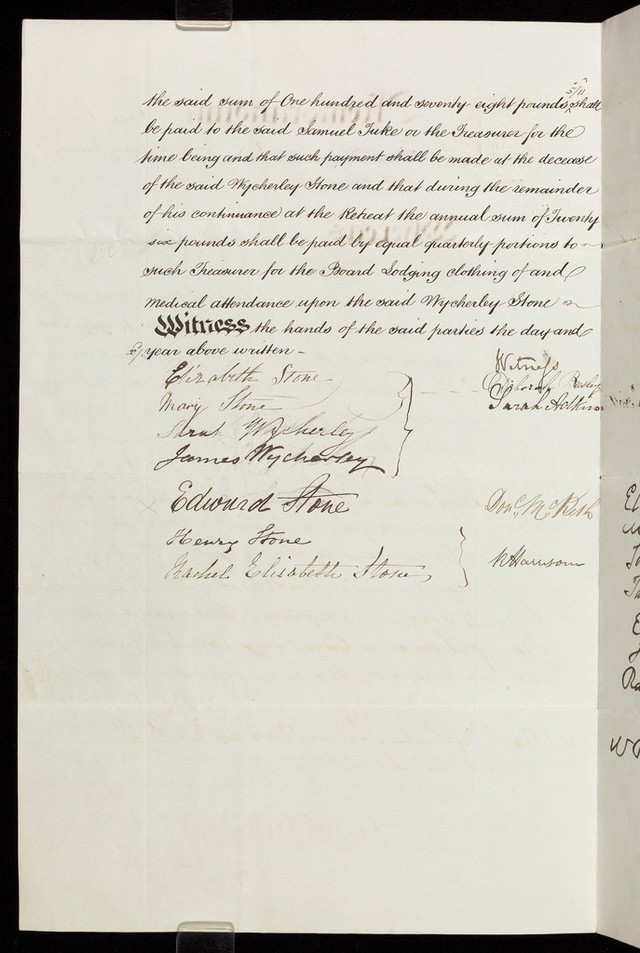 the said sum of One hundred and seventy eight pounds 5/11 shall
be paid to the said Samuel Tuke or the Treasurer for the
time being and that such payment shall be made at the decease
of the said Wycherley Stone and that during the remainder
of his continuance at the Retreat the annual sum of Twenty
six pounds shall be paid by equal quarterly portions to
such Treasurer for the Board Lodging clothing of and
medical attendance upon the said Wycherley Stone
Witness the hands of the said parties the day and
year above written -
Witness
Elizabeth Stone
Mary Stone Sarah
Sarah Wycherley
James Wycherley
Edward Stone
Henry Stone
Rachel Elisabeth Stone Harrison